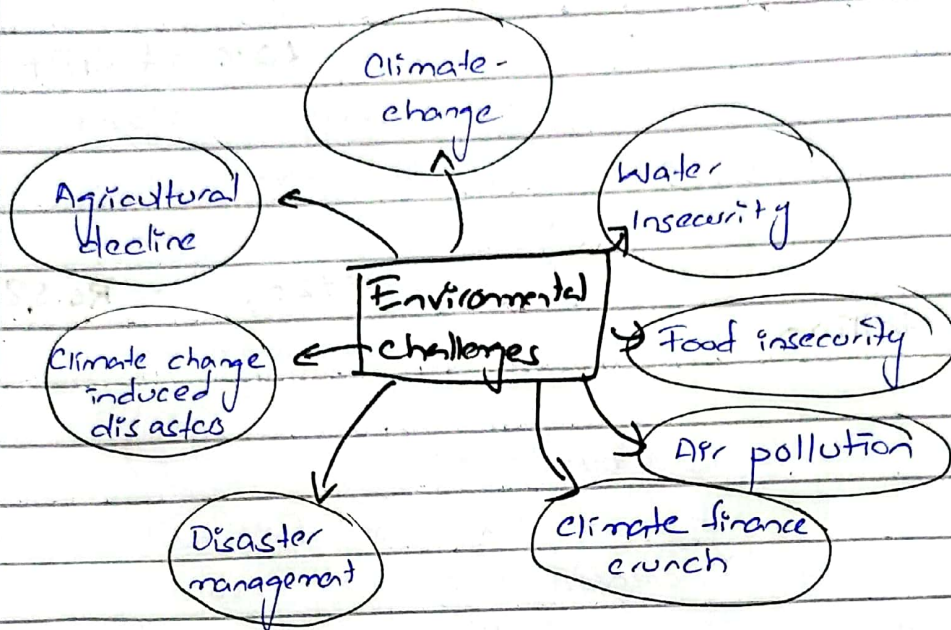 Climate-
change
Agricultural
decline
Water
Insecurity
Enviromental
challenges
Food insecurity
Climate change
induced
disastes
Air pollution
Climate finance
crunch
Disaster
management